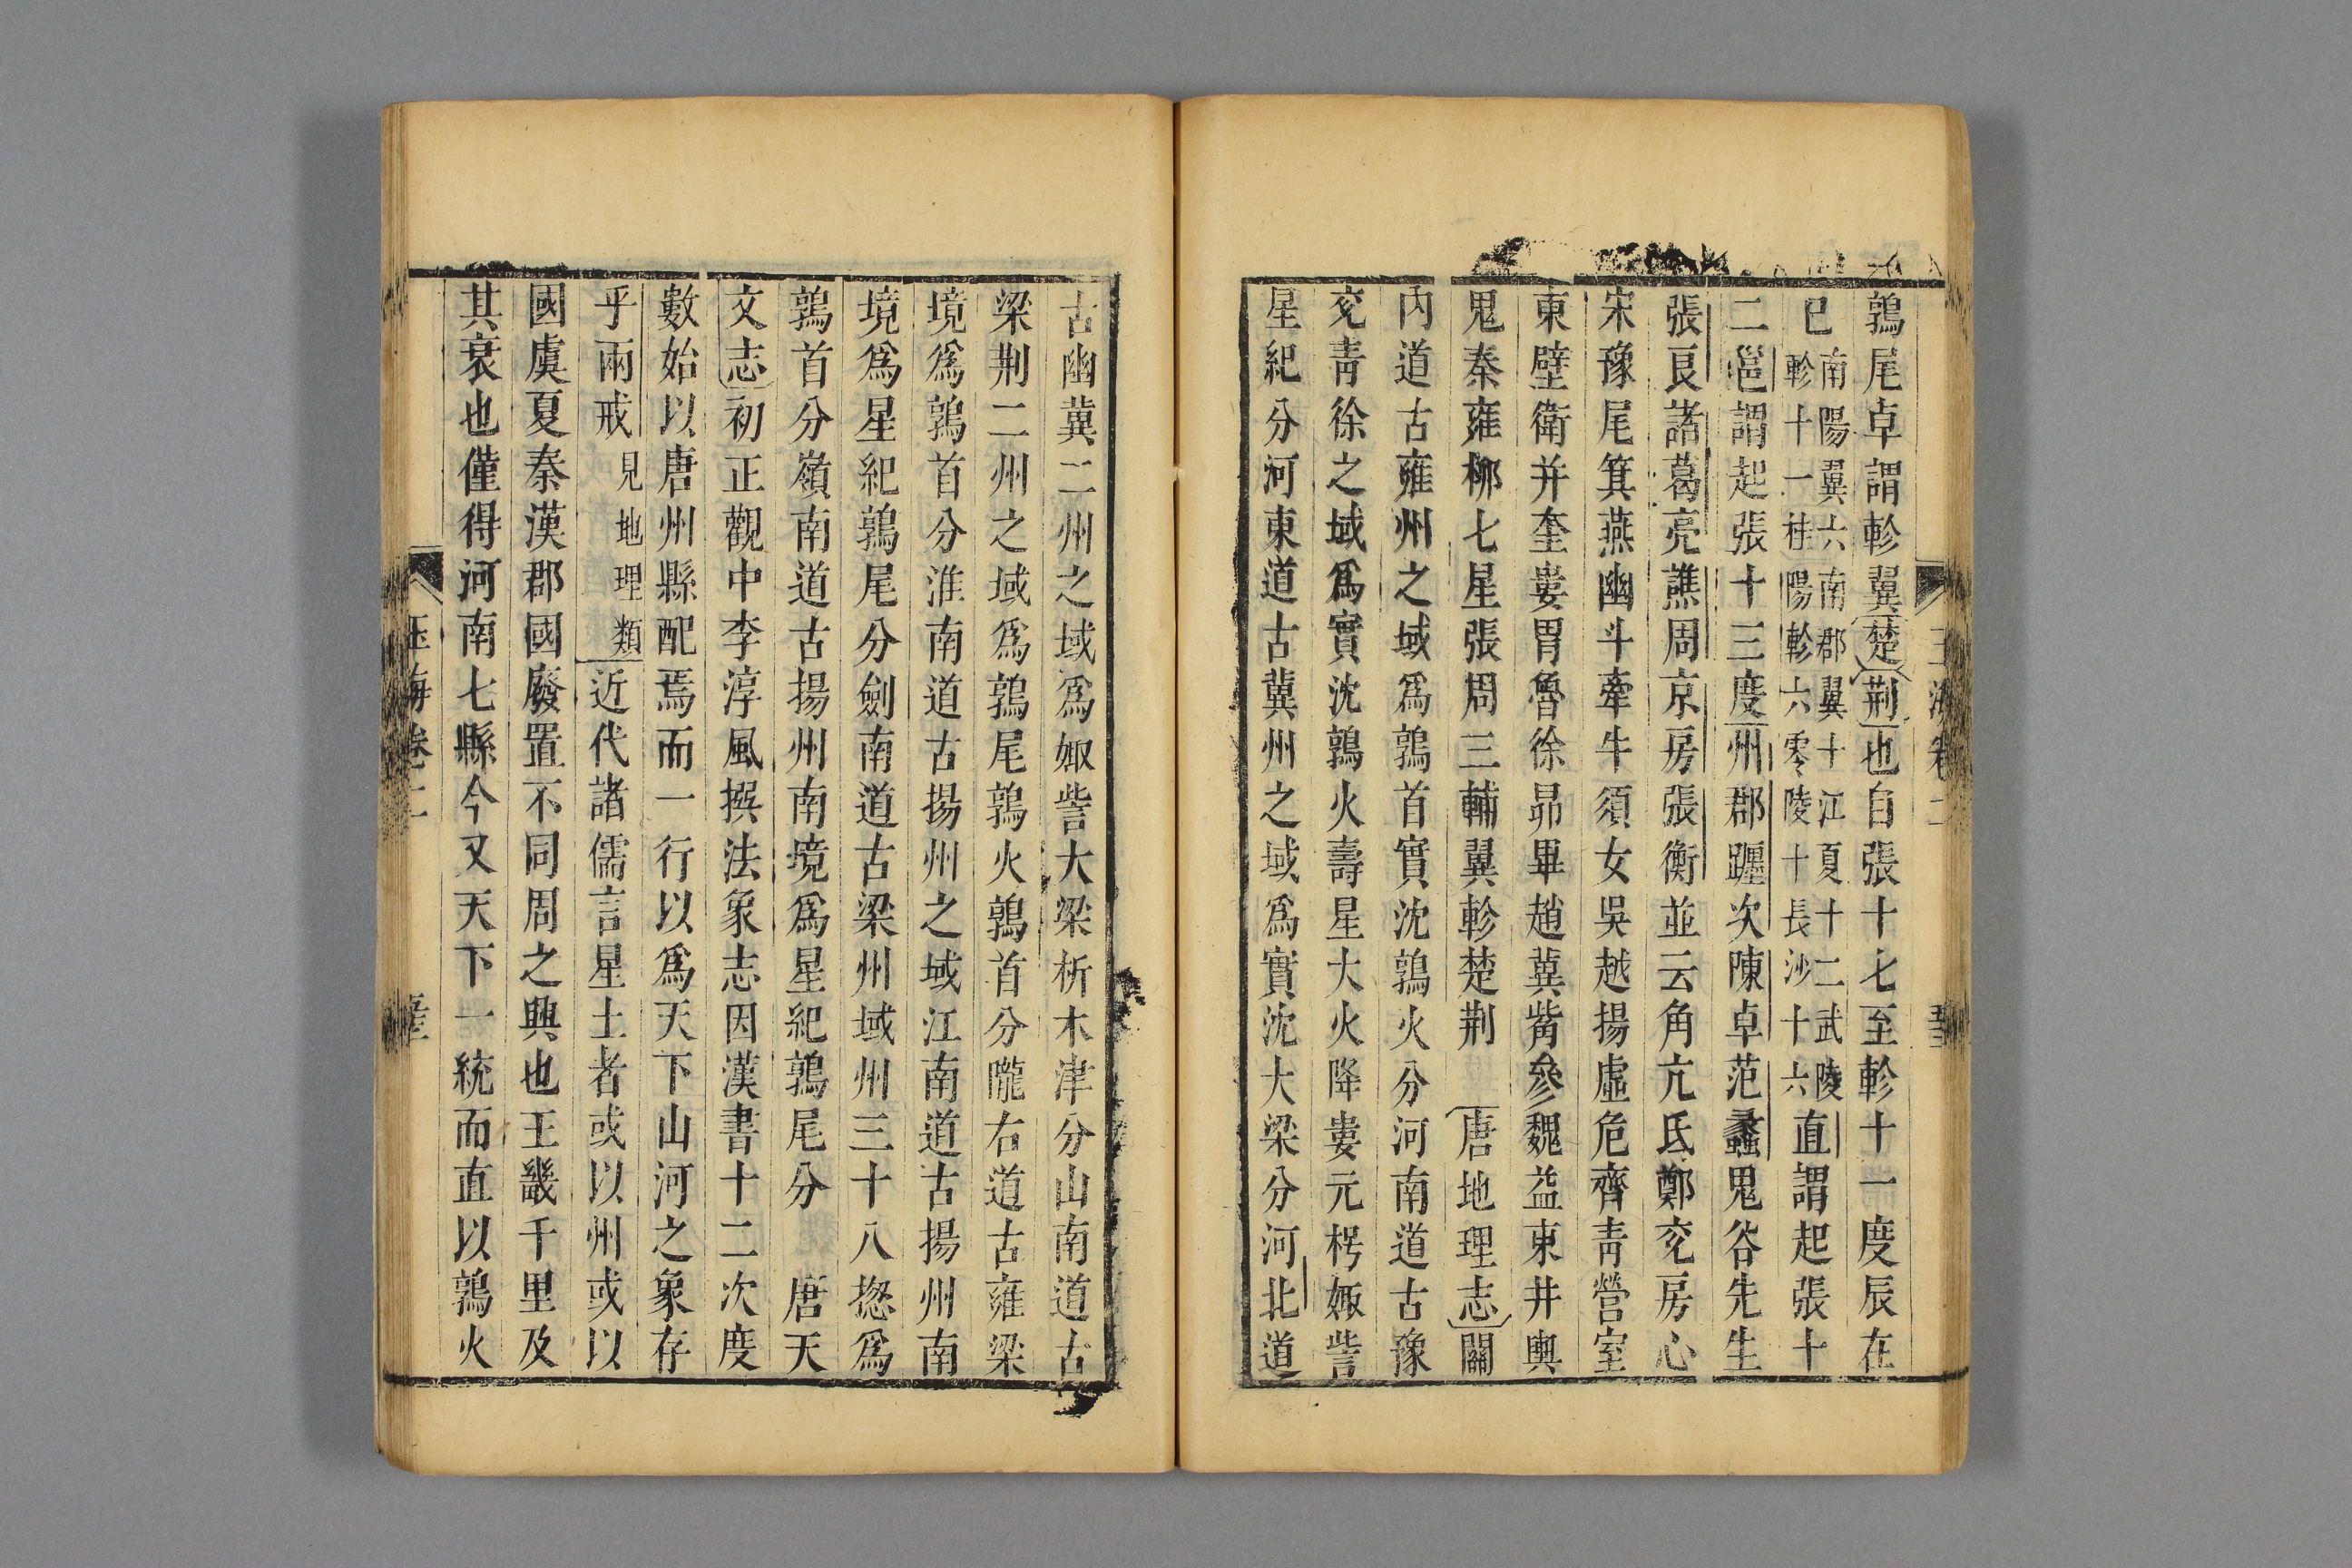 鶉尾卓謂軫翼楚荆也自張十七至軫十一度辰在
巳南陽翼六南郡翼十江夏十二武陵軫十一桂陽軫六零陵十長沙十六直謂起張十
二邕謂起張十三度州郡躔次陳卓范蠡鬼谷先生
張良諸葛亮譙周京房張衡並云角亢氐鄭兖房心
宋豫尾箕燕幽斗牽牛須女吳越揚虛危齊青營室
東壁衛并奎婁胃魯徐昴畢趙冀觜參魏益東井輿
鬼秦雍柳七星張周三輔翼軫楚荆 唐地理志關
内道古雍州之域爲鶉首實沈鶉火分河南道古豫
兖青徐之域爲實沈鶉火壽星大火降婁元枵娵訾
星紀分河東道古冀州之域爲實沈大梁分河北道
古幽冀二州之域爲娵訾大梁析木津分山南道古
梁荆二州之域爲鶉尾鶉火鶉首分隴右道古雍梁
境爲鶉首分淮南道古揚州之域江南道古揚州南
境爲星紀鶉尾分劍南道古梁州域州三十八揔爲
鶉首分嶺南道古揚州南境爲星紀鶉尾分 唐天
文志初正觀中李淳風撰法象志因漢書十二次度
數始以唐州縣配焉而一行以爲天下山河之象存
乎兩戒見地理類近代諸儒言星土者或以州或以
國虞夏秦漢郡國廢置不同周之興也王畿千里及
其衰也僅得河南七縣今又天下一統而直以鶉火
玉海卷二